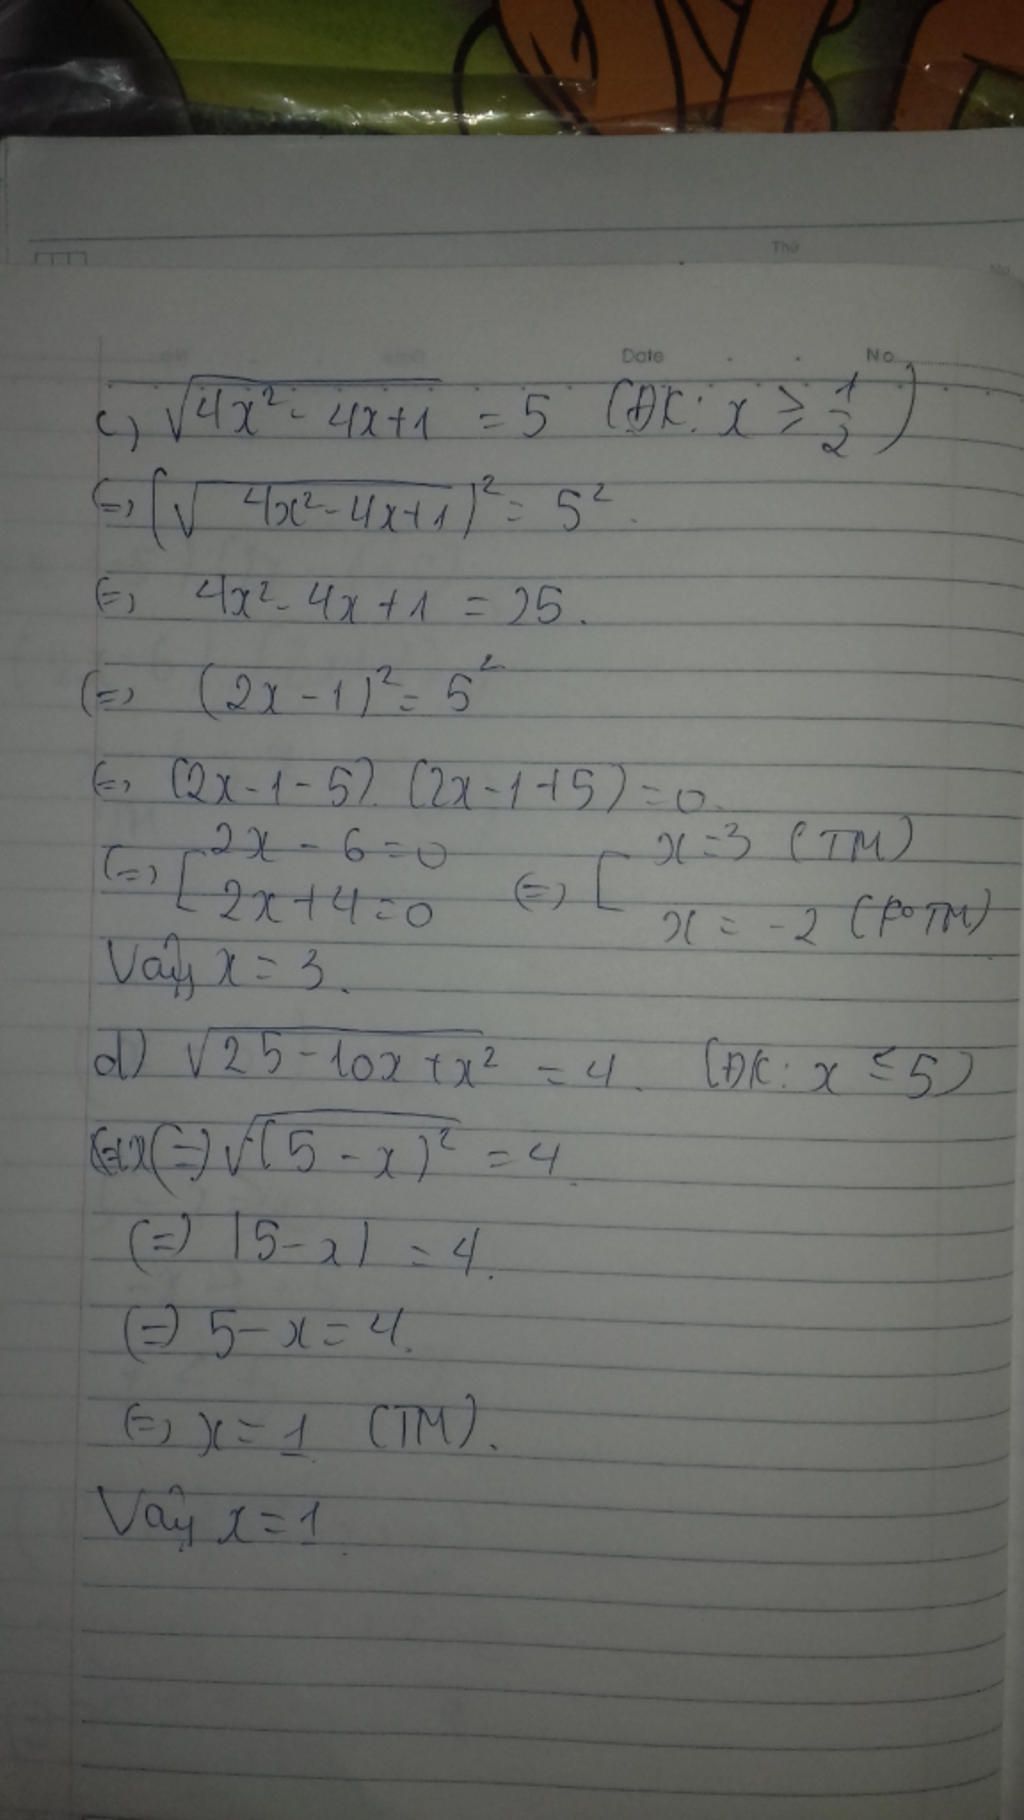 Thứ
Date No
c) √(4x² - 4x+1) = 5 (ĐK: x ≥ 1/2)
(=) (√(4x²-4x+1))² = 5².
(=) 4x²-4x+1 = 25.
(=) (2x-1)² = 5²
(=) (2x-1-5).(2x-1+5)=0.
(=) [ 2x - 6=0 (=) [ x=3 (TM)
2x+4=0 x = -2 (KoTM)
Vậy x = 3.
d) √(25-10x+x²) = 4. (ĐK: x ≤ 5)
(=) √((5-x)²) = 4.
(=) |5-x| = 4.
(=) 5-x=4.
(=) x=1 (TM).
Vậy x=1.